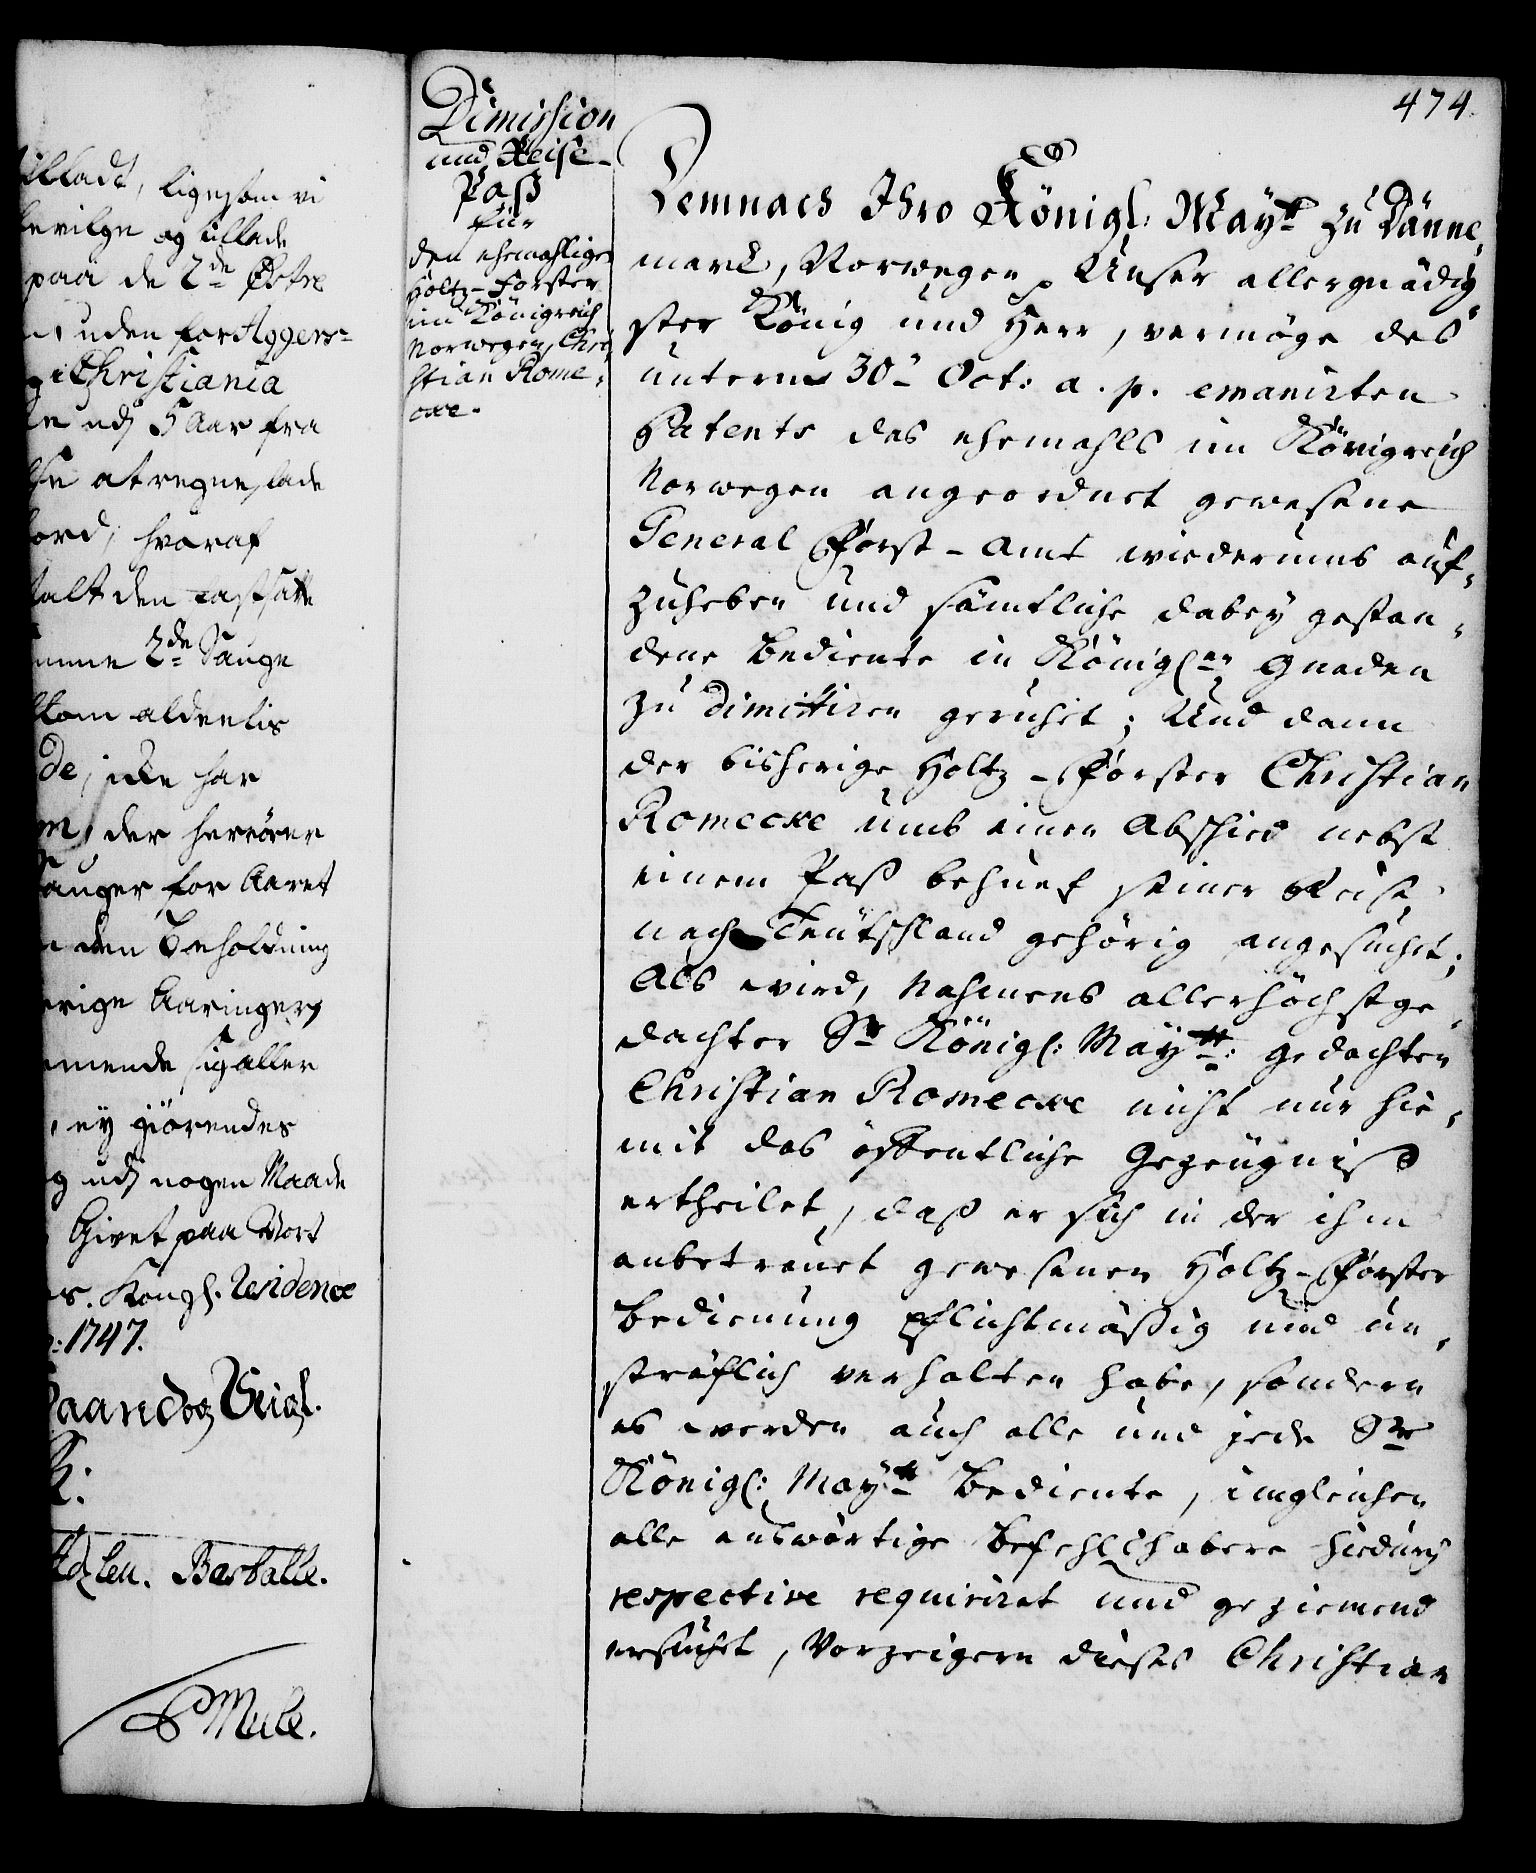 illadt, ligesom vi
bevilge og tillade
paa de 2de Østre
uden for Aggers=
Christiania
udj 5 Aar fra
at regne, lade
hvoraf
talt den fastsatte
2de Sauge
som aldeelis
de, icke har
der herrører
Sauger for Aaret
den Beholdning
rige Aaringer,
sig aller
ey giörendes
g udj nogen Maade
Givet paa Vort
Kongl. Residence
1747.
Haand og Seigl.
R:
Berballe.
Mule.
474.
Dimission
und Reise-
Paß
für
den ehemahligen
Holtz-Förster
im Königreich
Norwegen, Chri
stian Rome-
cke.
Demnach Ihro Königl: Maytt zu Dänne,
marck, Norwegen p Unser allergnädig
ster König und Herr, vermöge des
unterm 30t Oct: a. p. emanirten
Patents das ehemahls im Königreich
Norwegen angeordnet gewesene
General Forst-Amt wiederumb auf-
zuheben und sämtliche dabey gestan-
dene Bediente in Königlen Gnaden
zu dimittiren geruhet; Und dann
der bisherige Holtz-Förster Christian
Romecke umb einen Abschied nebst
einem Paß behuef seiner Reise
nach Teütschland gehörig angesuchet;
Als wird, Nahmens allerhöchstge-
dachter Sr Königl: Maytt: gedachten
Christian Romecke nicht nur hie-
mit das öffentliche Gezeügniß
ertheilet, daß er sich in der ihm
anbetrauet gewesenen Holtz-Förster
Bedienung pflichtmäßig und un-
sträflich verhalten habe, sondern
es werden auch alle und jede Sr
Königl: Maytt Bediente, imgleichen
alle auswärtige Befehlshabere hiedurch
respective requiriret und geziemend
ersuchet, Vorzeigern dieses Christian